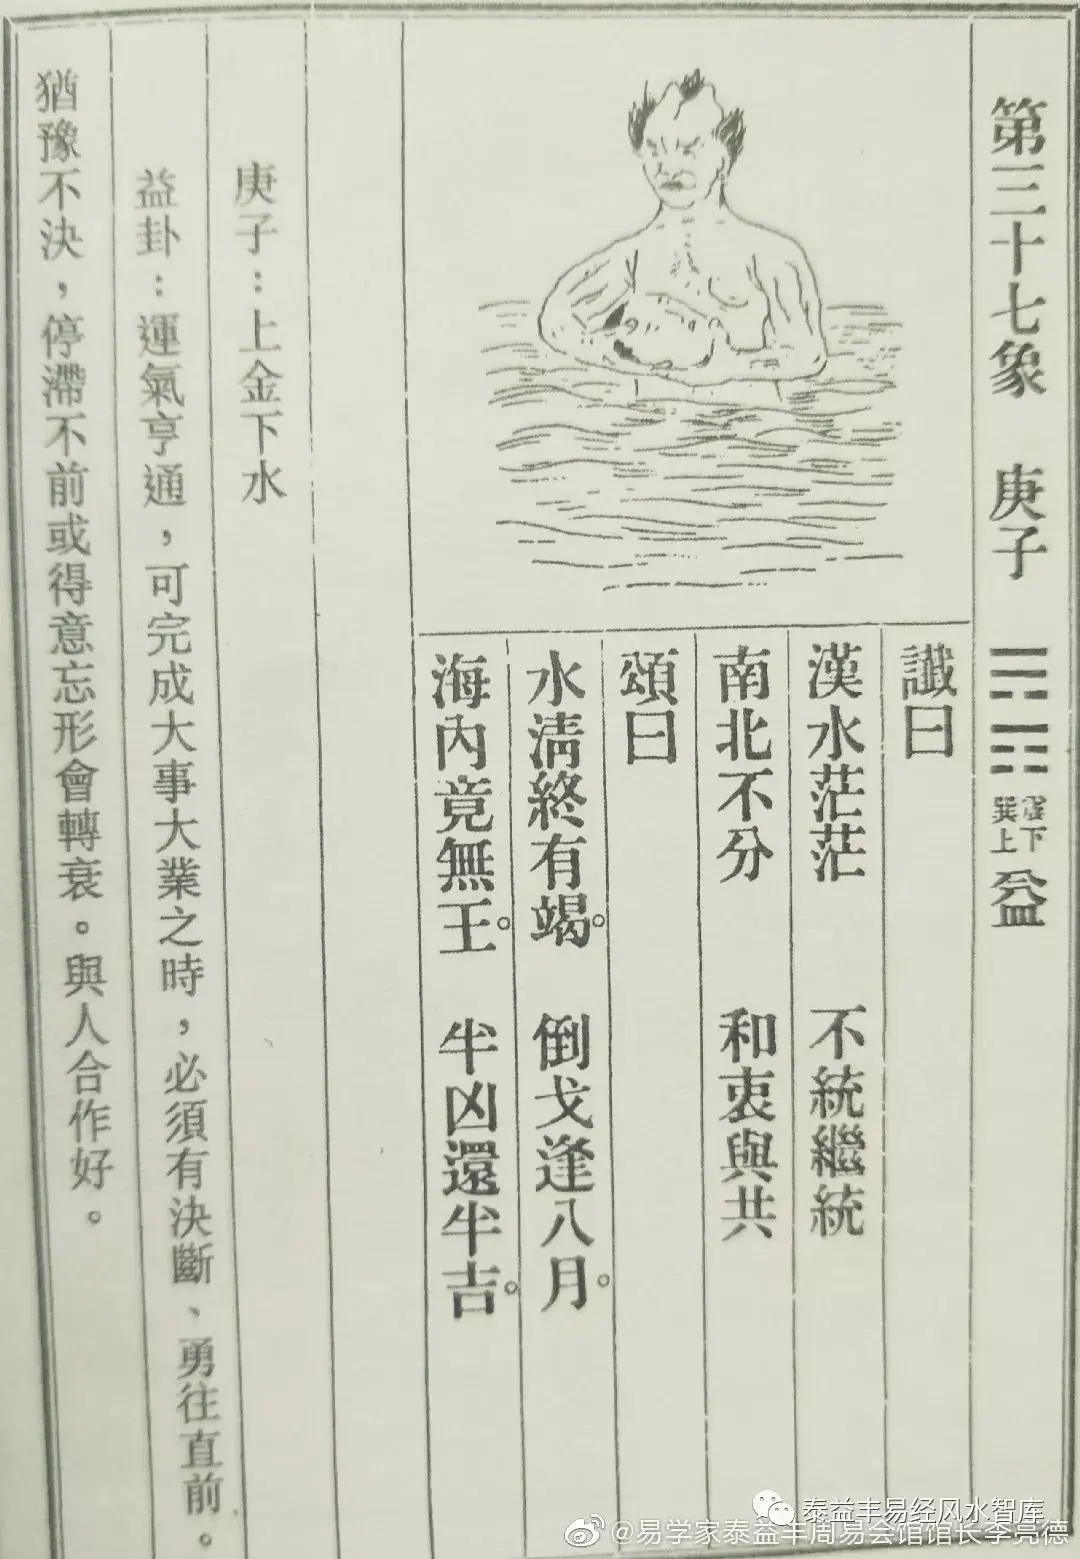 第三十七象 庚子 震下 巽上 益
讖曰
漢水茫茫 不統繼統
南北不分 和衷與共
頌曰
水清終有竭。 倒戈逢八月。
海內竟無王。 半凶還半吉。
庚子：上金下水
益卦：運氣亨通，可完成大事大業之時，必須有決斷、勇往直前。
猶豫不決，停滯不前或得意忘形會轉衰。與人合作好。
泰益丰易经风水智库
@易学家泰益丰周易会馆馆长李亮德